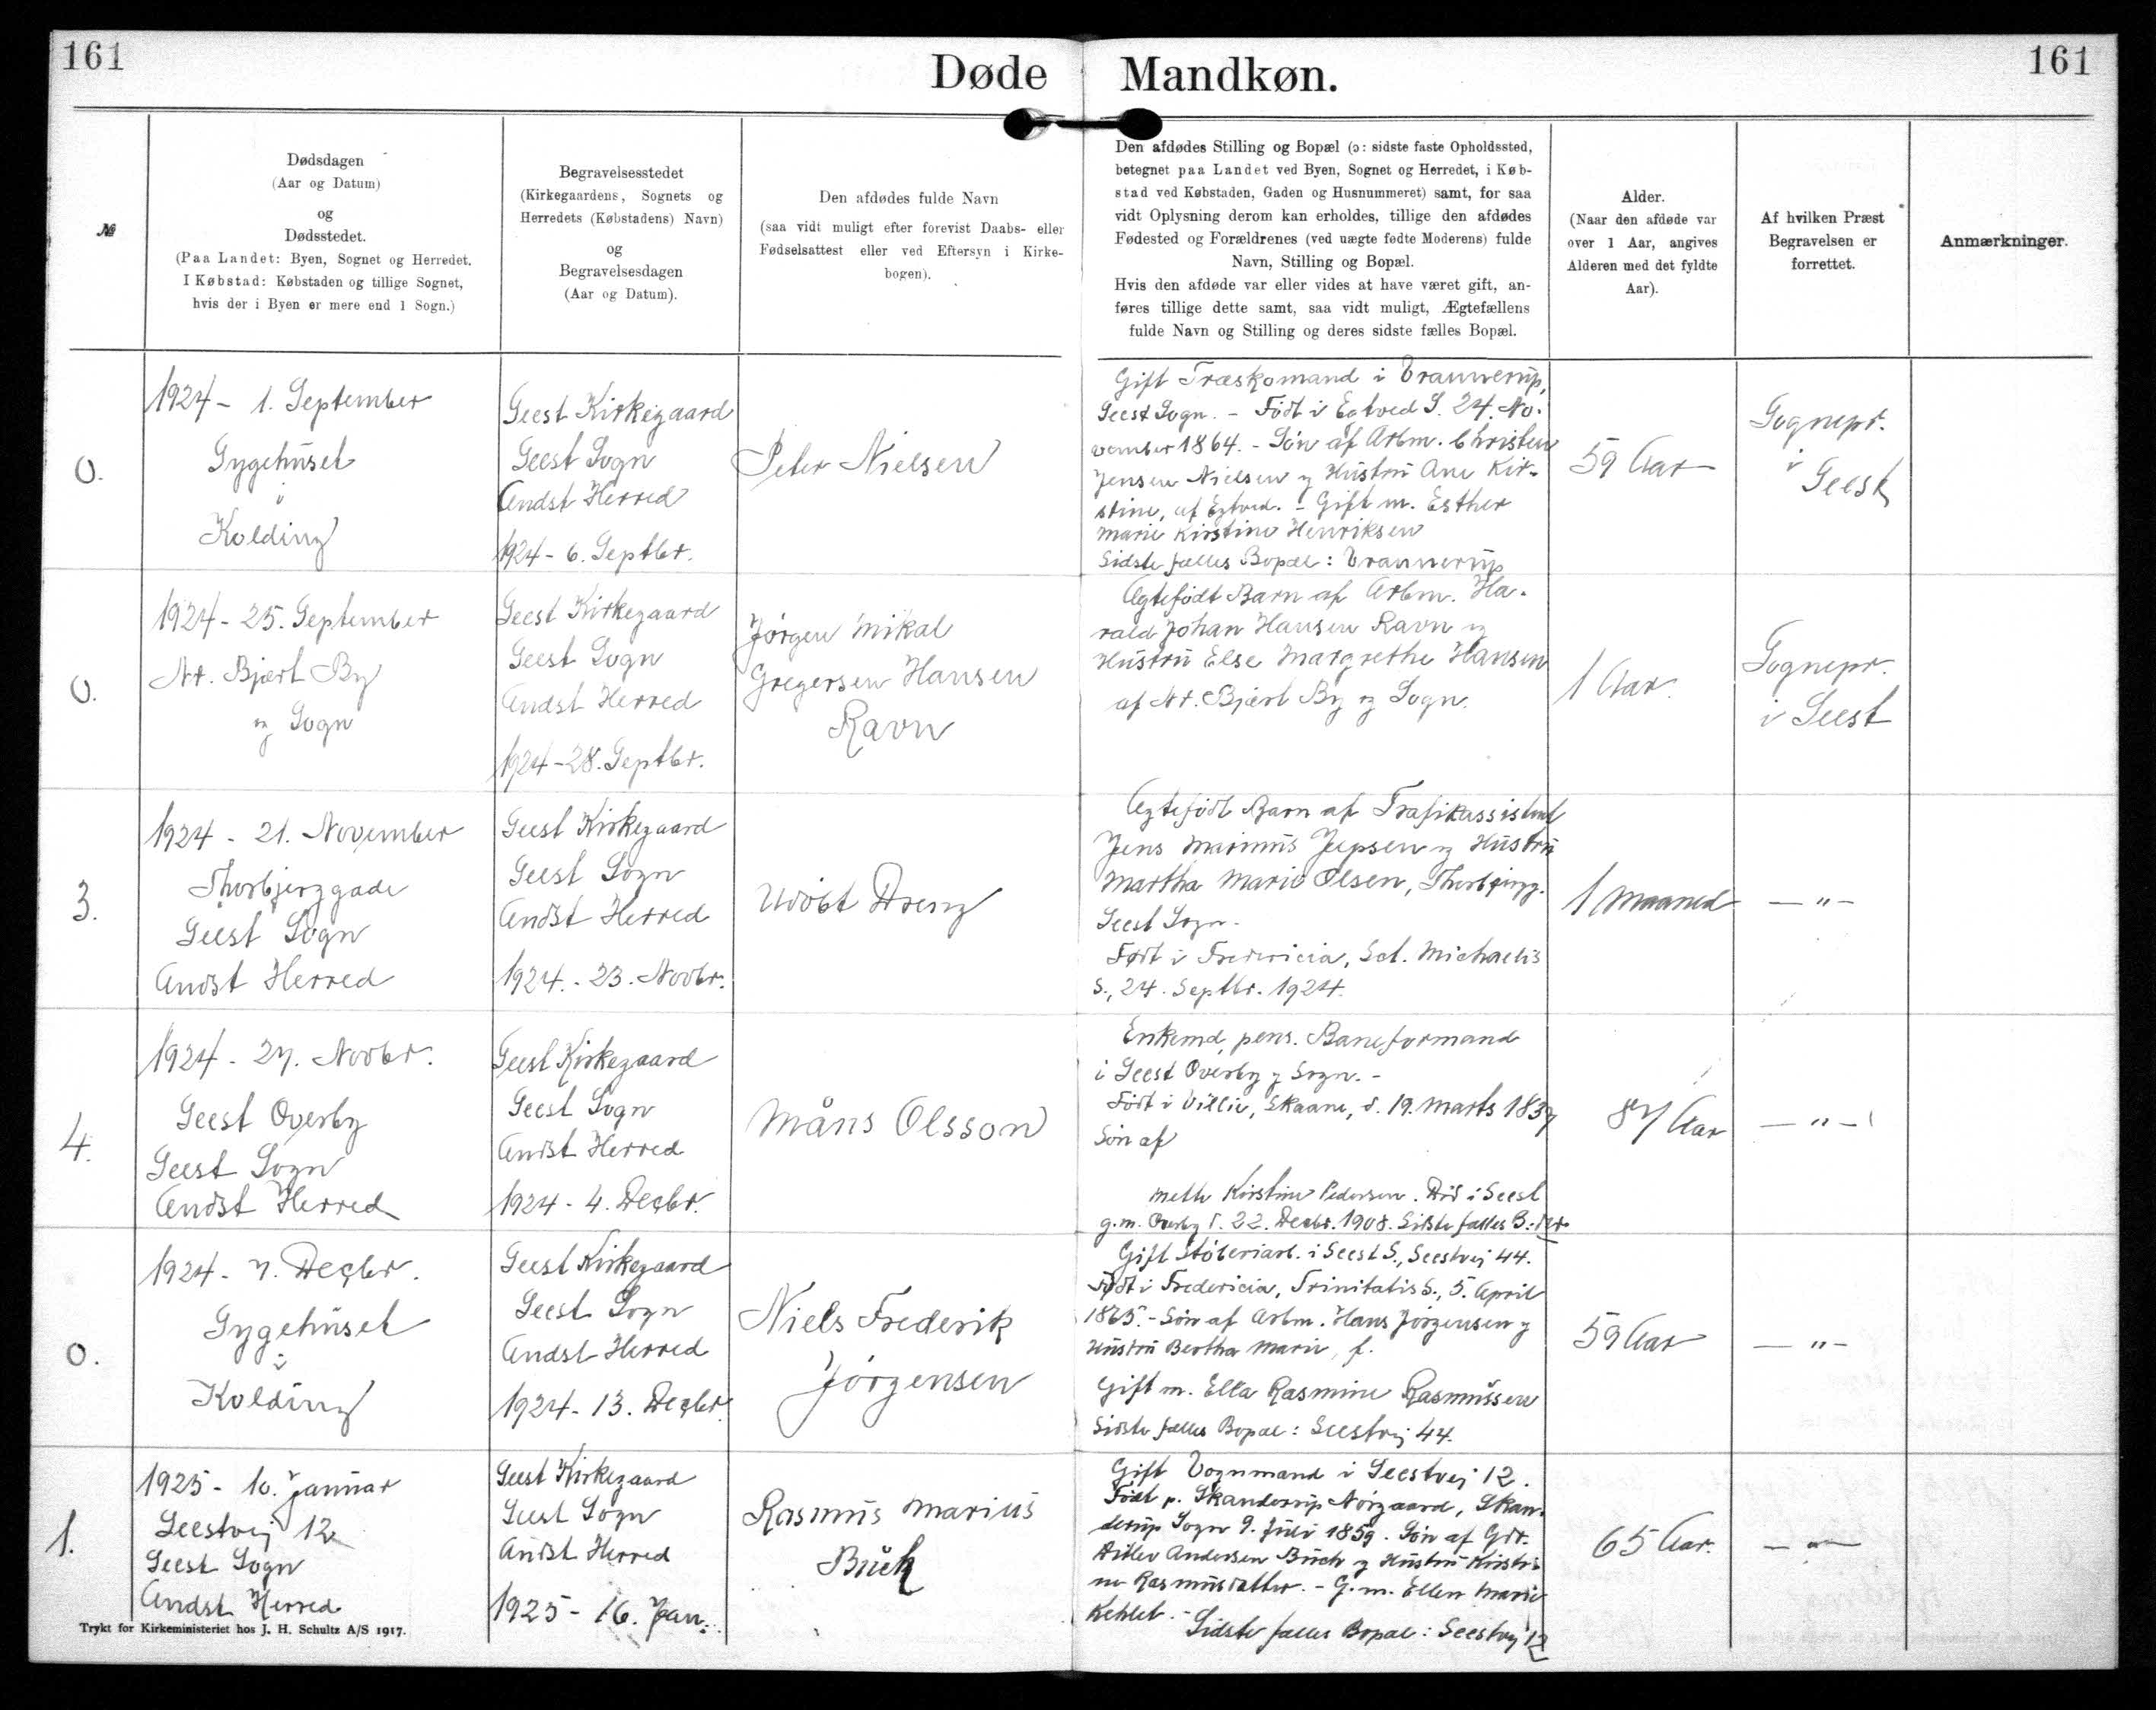 161
Døde Mandkøn.
161
№
Dødsdagen
(Aar og Datum)
og
Dødsstedet.
(Paa Landet: Byen, Sognet og Herredet.
I Købstad: Købstaden og tillige Sognet,
hvis der i Byen er mere end 1 Sogn.)
Begravelsesstedet
(Kirkegaardens, Sognets og
Herredets (Købstadens) Navn)
og
Begravelsesdagen
(Aar og Datum).
Den afdødes fulde Navn
(saa vidt muligt efter forevist Daabs- eller
Fødselsattest eller ved Eftersyn i Kirke-
bogen).
Den afdødes Stilling og Bopæl (ɔ: sidste faste Opholdssted,
betegnet paa Landet ved Byen, Sognet og Herredet, i Køb-
stad ved Købstaden, Gaden og Husnummeret) samt, for saa
vidt Oplysning derom kan erholdes, tillige den afdødes
Fødested og Forældrenes (ved uægte fødte Moderens) fulde
Navn, Stilling og Bopæl.
Hvis den afdøde var eller vides at have været gift, an-
føres tillige dette samt, saa vidt muligt, Ægtefællens
fulde Navn og Stilling og deres sidste fælles Bopæl.
Alder.
(Naar den afdøde var
over 1 Aar, angives
Alderen med det fyldte
Aar).
Af hvilken Præst
Begravelsen er
forrettet.
Anmærkninger.
0.
1924 - 1. September
Sygehuset
i
Kolding
Seest Kirkegaard
Seest Sogn
Andst Herred
1924 - 6. Septbr.
Peter Nielsen
Gift Træskomand i Vrannerup,
Seest Sogn. - Født i Egtved S. 24. No-
vember 1864. - Søn af Arbm. Christen
Jensen Nielsen og Hustru Ane Kir-
stine, af Egtved. - Gift m. Esther
Marie Kirstine Henriksen
Sidste fælles Bopæl: Vrannerup
59 Aar
Sognepr.
i
Seest
0.
1924 - 25. September
Nr. Bjert By
og Sogn
Seest Kirkegaard
Seest Sogn
Andst Herred
1924 - 28. Septbr.
Jørgen Mikal
Gregersen Hansen
Ravn
Ægtefødt Barn af Arbm. Ha-
rald Johan Hansen Ravn og
Hustru Else Margrethe Hansen
af Nr. Bjert By og Sogn.
1 Aar.
Sognepr.
i Seest
3.
1924 - 21. November
Thorbjerggade
Seest Sogn
Andst Herred
Seest Kirkegaard
Seest Sogn
Andst Herred
1924. - 23. Novbr.
Udøbt Dreng
Ægtefødt Barn af Trafikassistent
Jens Marinus Jepsen og Hustru
Martha Marie Olsen, Thorbjergg.
Seest Sogn.
Født i Fredericia, Sct. Michaelis
S., 24. Septbr. 1924.
1 Maaned
— " —
4.
1924 - 27. Novbr.
Seest Overby
Seest Sogn
Andst Herred
Seest Kirkegaard
Seest Sogn
Andst Herred
1924 - 4. Decbr.
Måns Olsson
Enkemd, pens. Baneformand
i Seest Overby og Sogn. -
Født i Villie, Skaane, d. 19. Marts 1837
Søn af
Mette Kirstine Pedersen. Død i Seest
g. m. Overby d. 22. Decbr. 1908. Sidste fælles B.: der
87 Aar
— " —
0.
1924 - 7. Decbr.
Sygehuset
i
Kolding
Seest Kirkegaard
Seest Sogn
Andst Herred
1924 - 13. Decbr.
Niels Frederik
Jørgensen
Gift Støberiarb. i Seest S., Seestvej 44.
Født i Fredericia, Trinitatis S., 5. April
1865. - Søn af Arbm. Hans Jørgensen og
Hustru Bertha Marie, f.
Gift m. Ella Rasmine Rasmussen
Sidste fælles Bopæl: Seestvej 44.
59 Aar
— " —
1.
1925 - 10. Januar
Seestvej 12
Seest Sogn
Andst Herred
Seest Kirkegaard
Seest Sogn
Andst Herred
1925 - 16. Jan.
Rasmus Marius
Buch
Gift Vognmand i Seestvej 12.
Født p. Skanderup Nørgaard, Skan-
derup Sogn 9. Juli 1859. Søn af Gdr.
Ditlev Andersen Buch og Hustru Kirsti-
ne Rasmusdatter. - G. m. Ellen Marie
Kehlet. -
Sidste fælles Bopæl: Seestvej 12
65 Aar.
— " —
Trykt for Kirkeministeriet hos J. H. Schultz A/S 1917.